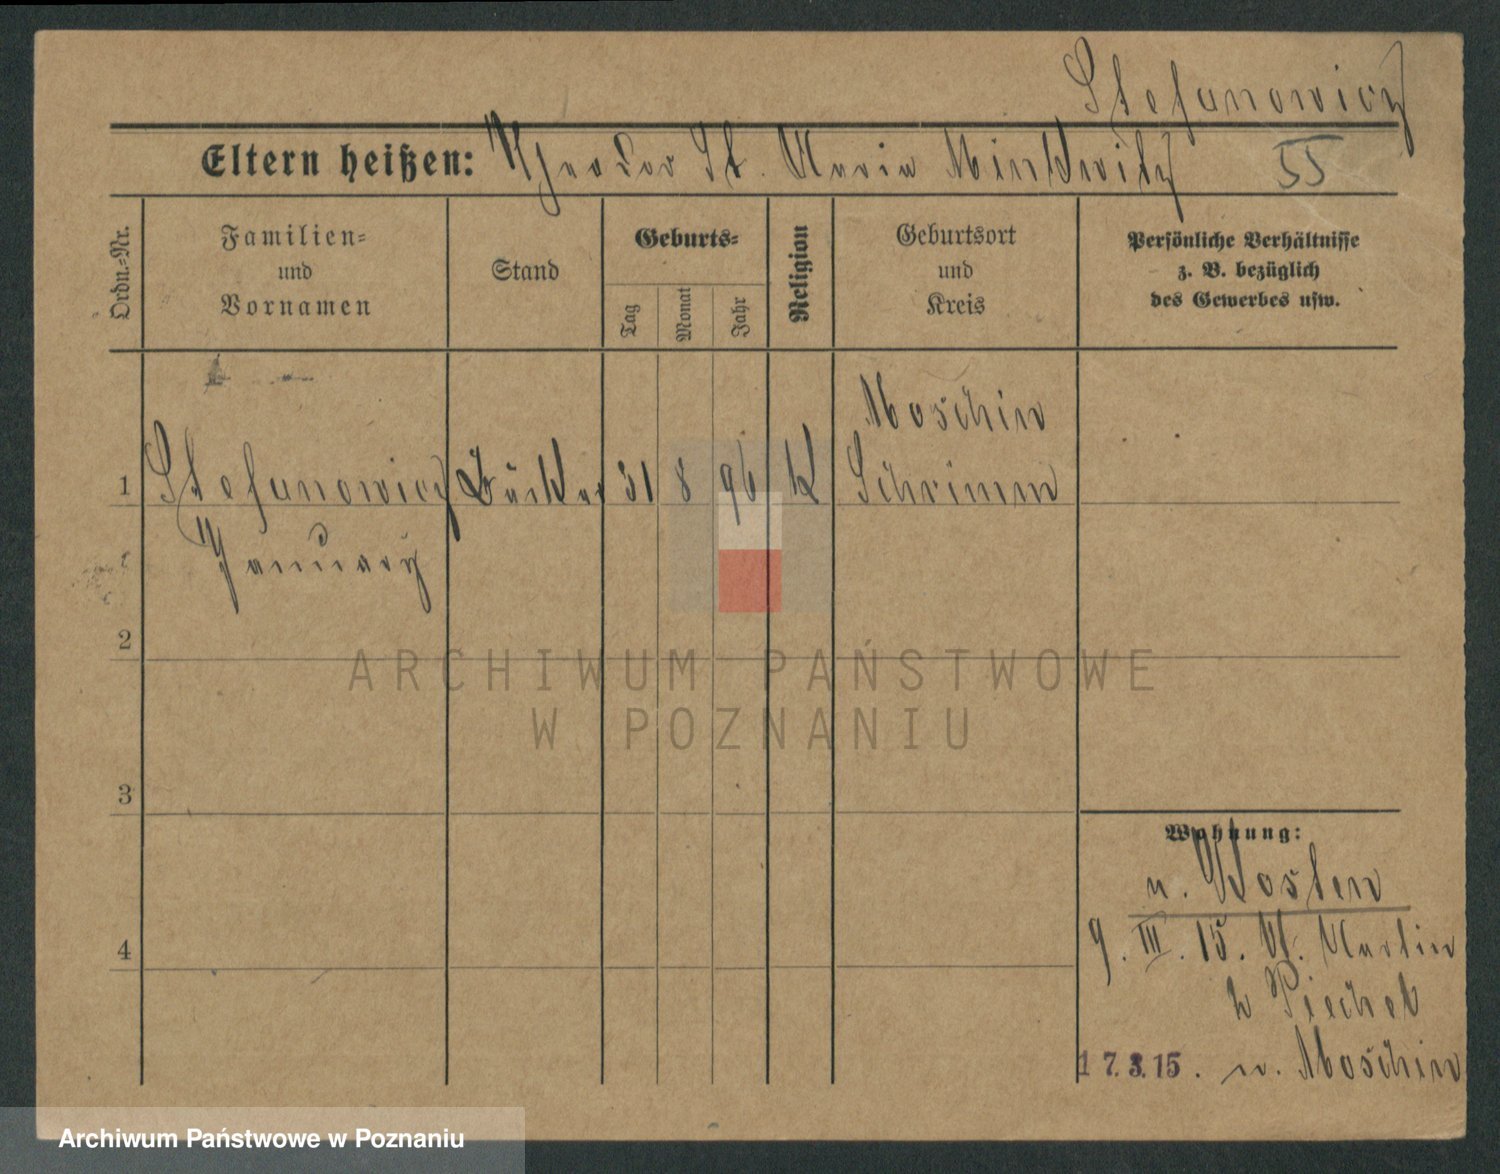 Stefanowicz
Eltern heißen: Theodor St. Maria Minkwitz 55
Ordn.-Nr.
Familien-
und
Vornamen
Stand
Geburts-
Tag
Monat
Jahr
Religion
Geburtsort
und
Kreis
Persönliche Verhältnisse
z. B. bezüglich
des Gewerbes usw.
Moschin
1 Stefanowicz Bäcker 31 8 96 k Schrimm
January
2
3
4
Wohnung:
n. Posten
9. III. 15. St. Martin
b
17.3.15. n. Moschin
ARCHIWUM PAŃSTWOWE
W POZNANIU
Archiwum Państwowe w Poznaniu